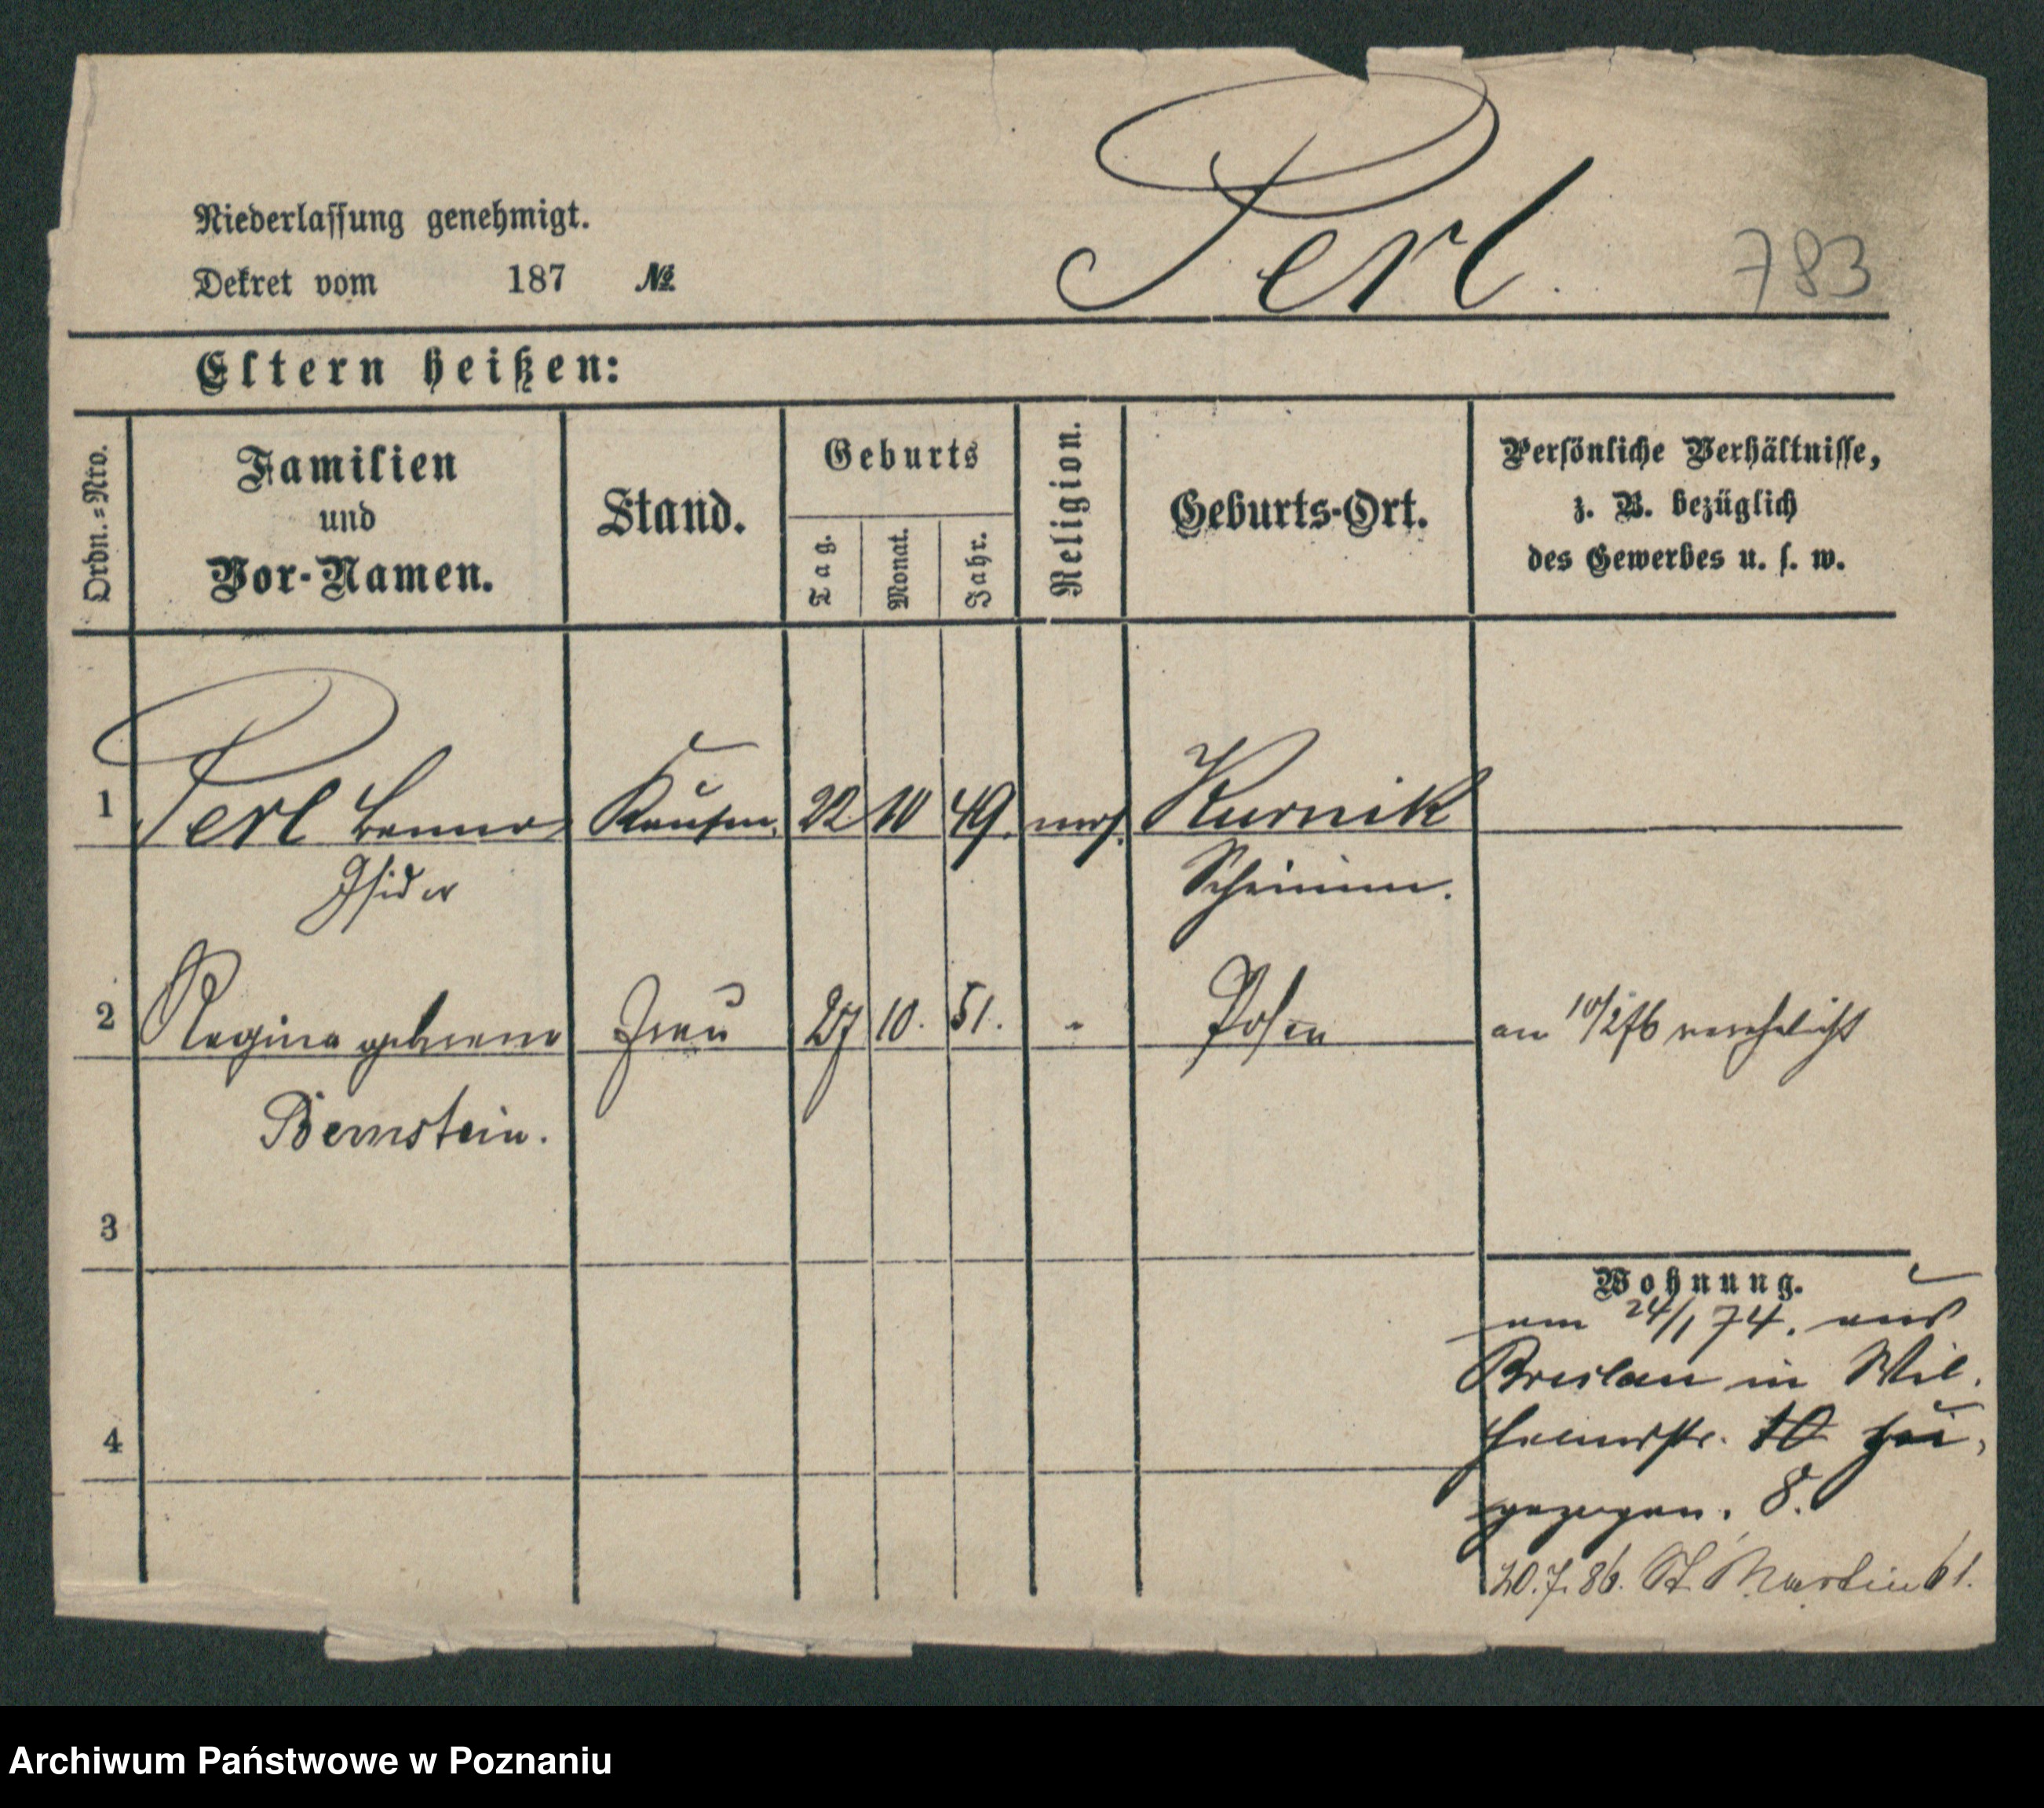 Perl
783
Niederlassung genehmigt.
Dekret vom 187 №
Eltern heißen:
Ordn.=Nro.
Familien
und
Vor-Namen.
Stand.
Geburts
Tag.
Monat.
Jahr.
Religion.
Geburts-Ort.
Persönliche Verhältnisse,
z. B. bezüglich
des Gewerbes u. s. w.
1 Perl Benno Kaufm. 22 10 49. mos. Kurnik
Isidor Schrimm.
2 Regina geborene Frau 27 10. 51. " Posen am 10/2 76 verehelicht
Bernstein.
3
Wohnung.
am 24/1 74. aus
Breslau in Wil.
helmstr. 10 zu,
4
gezogen. 8.
20.7.86. St Martin 61.
Archiwum Państwowe w Poznaniu